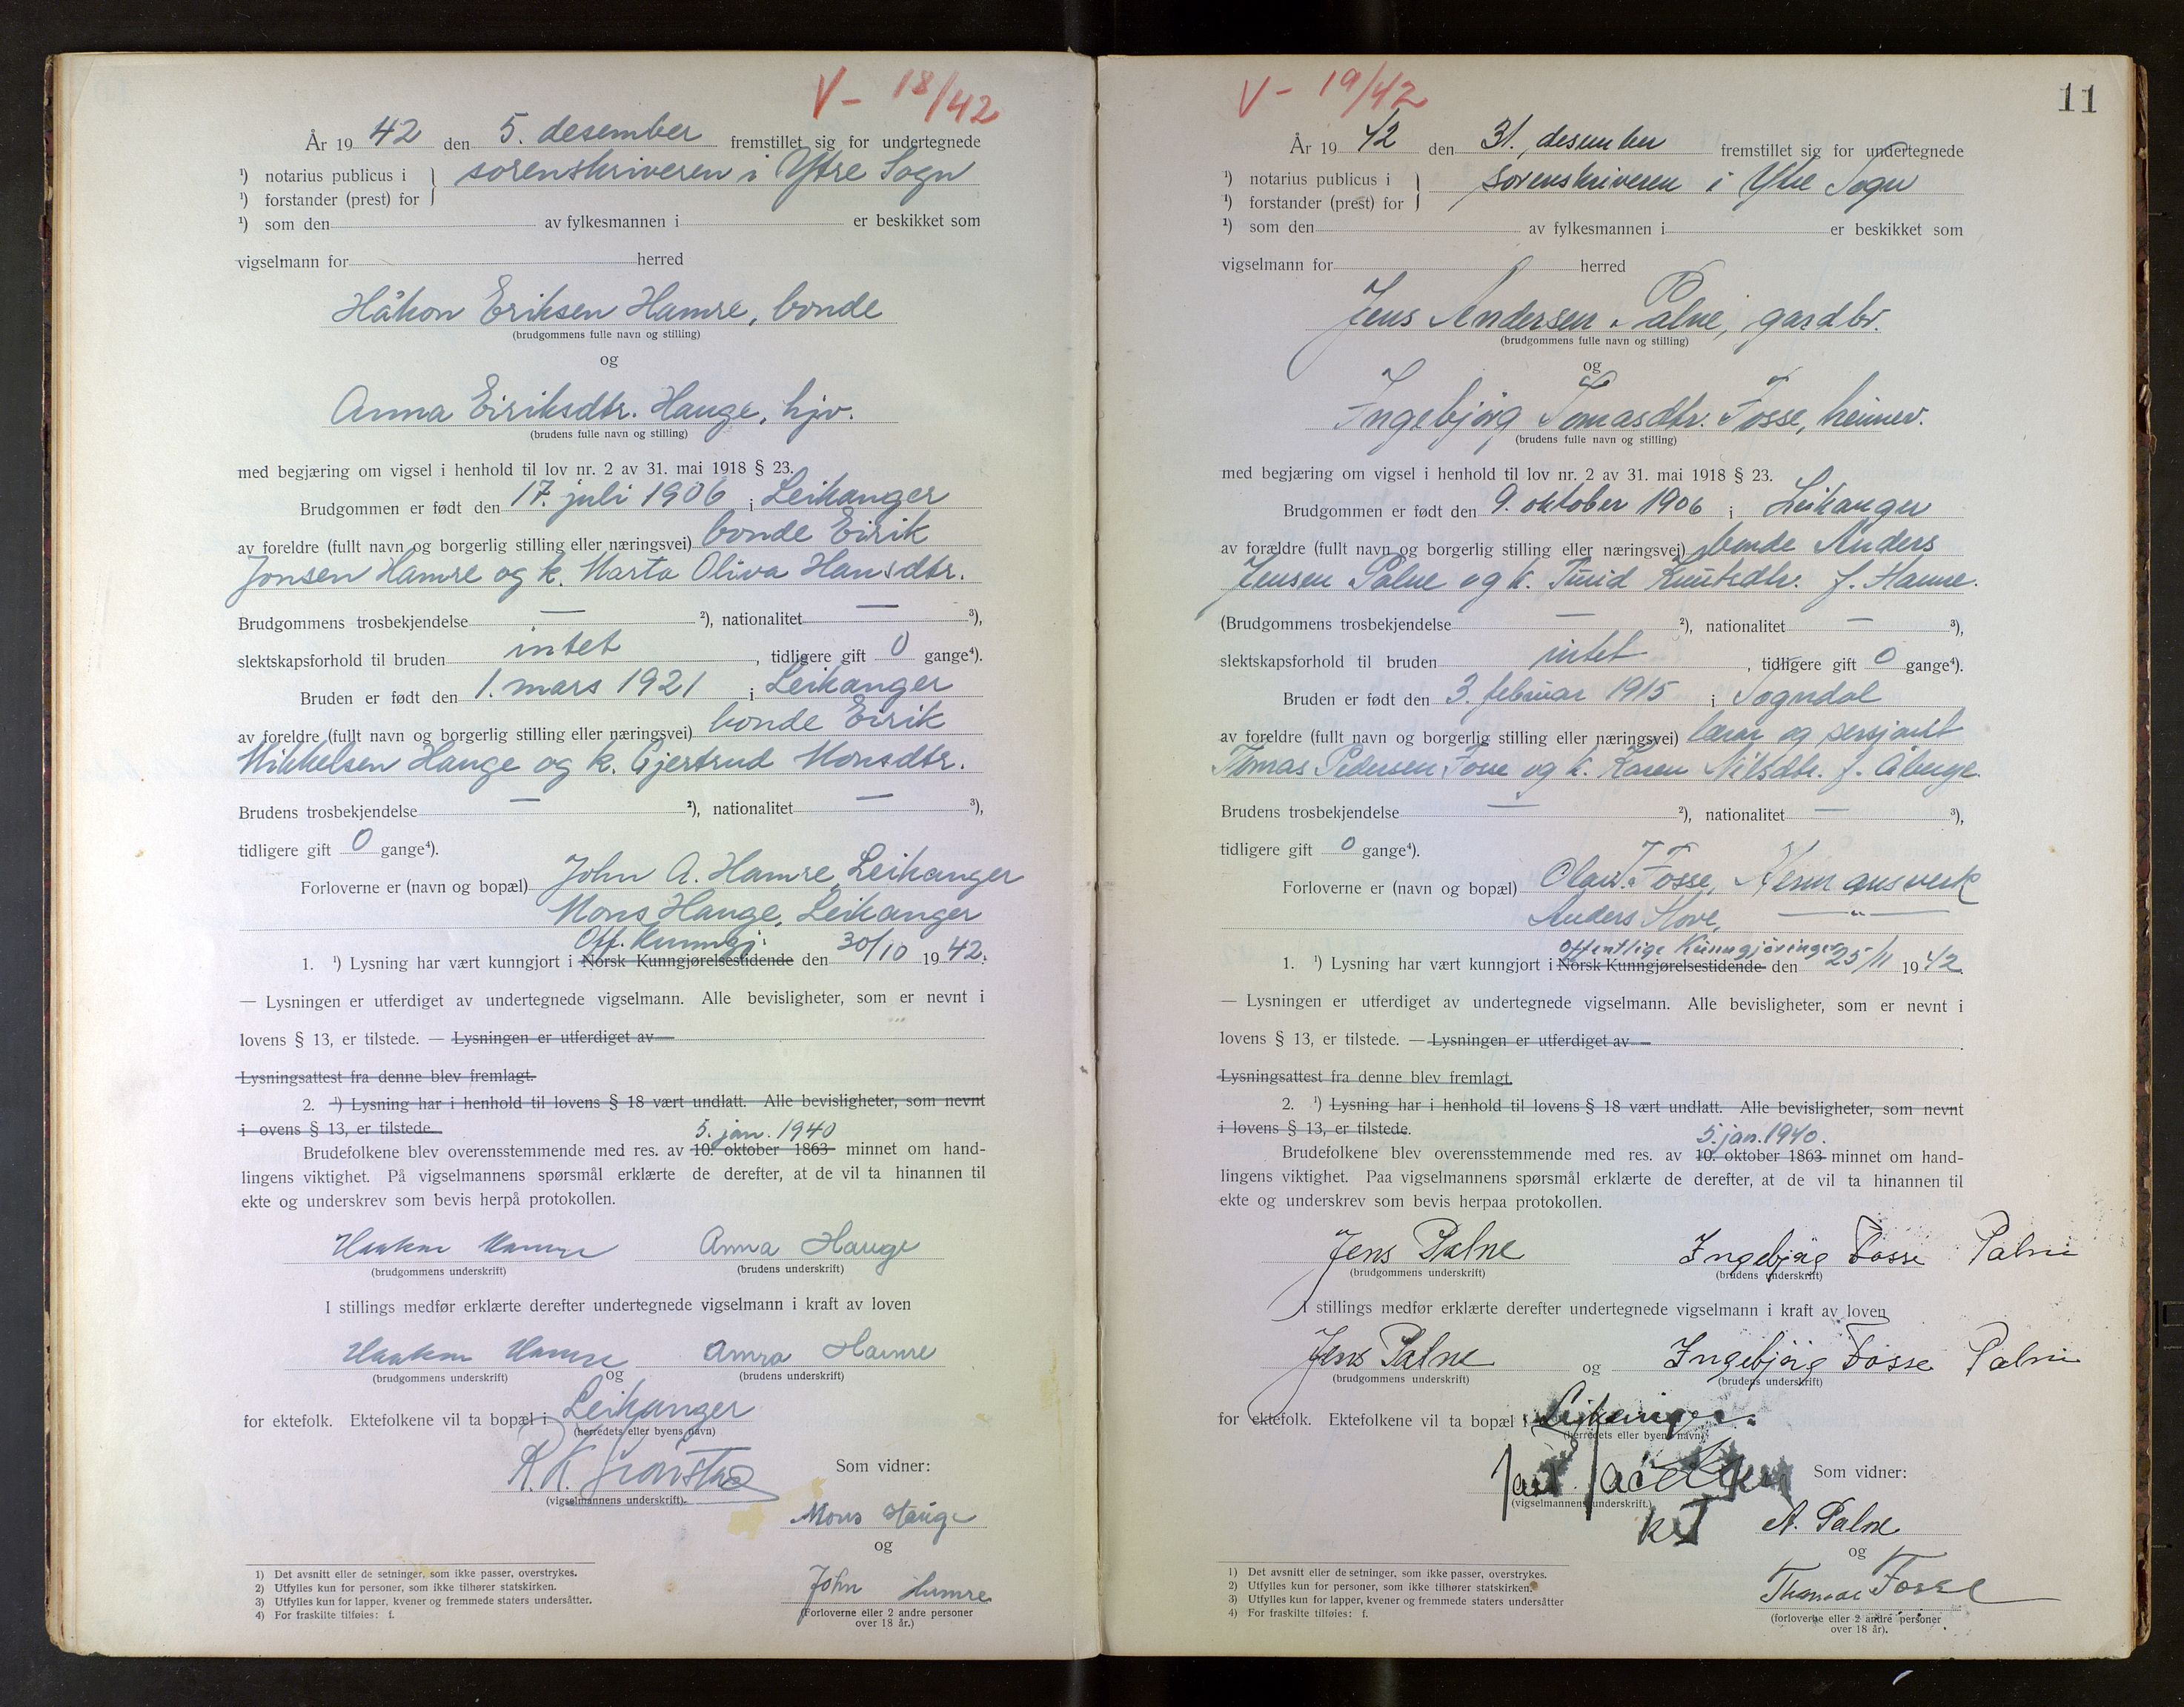 V- 18/42
År 1942 den 5. desember fremstillet sig for undertegnede
¹) notarius publicus i } sorenskriveren i Ytre Sogn
¹) forstander (prest) for
¹) som den av fylkesmannen i er beskikket som
vigselmann for herred
Håkon Eriksen Hamre, bonde
(brudgommens fulle navn og stilling)
og
Anna Eiriksdtr. Hauge, hjv.
(brudens fulle navn og stilling)
med begjæring om vigsel i henhold til lov nr. 2 av 31. mai 1918 § 23.
Brudgommen er født den 17. juli 1906 i Leikanger
av foreldre (fullt navn og borgerlig stilling eller næringsvei) bonde Eirik
Jonsen Hamre og k. Marta Oliva Hansdtr.
Brudgommens trosbekjendelse — ²), nationalitet — ³),
slektskapsforhold til bruden intet, tidligere gift 0 gange⁴).
Bruden er født den 1. mars 1921 i Leikanger
av foreldre (fullt navn og borgerlig stilling eller næringsvei) bonde Eirik
Mikkelsen Hauge og k. Gjertrud Monsdtr.
Brudens trosbekjendelse — ²), nationalitet — ³),
tidligere gift 0 gange⁴).
Forloverne er (navn og bopæl) John A. Hamre, Leikanger
Mons Hauge, Leikanger
Off. Kunngj.
1. ¹) Lysning har vært kunngjort i Norsk Kunngjørelsestidende den 30/10 1942.
— Lysningen er utferdiget av undertegnede vigselmann. Alle bevisligheter, som er nevnt i
lovens § 13, er tilstede. — Lysningen er utferdiget av
Lysningsattest fra denne blev fremlagt.
2. ¹) Lysning har i henhold til lovens § 18 vært undlatt. Alle bevisligheter, som nevnt
i ovens § 13, er tilstede.
5. jan. 1940
Brudefolkene blev overensstemmende med res. av 10. oktober 1863 minnet om hand-
lingens viktighet. På vigselmannens spørsmål erklærte de derefter, at de vil ta hinannen til
ekte og underskrev som bevis herpå protokollen.
Haakon Hamre Anna Hauge
(brudgommens underskrift) (brudens underskrift)
I stillings medfør erklærte derefter undertegnede vigselmann i kraft av loven
Haakon Hamre Anna Hamre
(brudgommens underskrift) og (brudens underskrift)
for ektefolk. Ektefolkene vil ta bopæl i Leikanger
(herredets eller byens navn)
R. K.
Som vidner:
(vigselmannens underskrift).
Mons Hauge
og
John Hamre
(Forloverne eller 2 andre personer
over 18 år.)
1) Det avsnitt eller de setninger, som ikke passer, overstrykes.
2) Utfylles kun for personer, som ikke tilhører statskirken.
3) Utfylles kun for lapper, kvener og fremmede staters undersåtter.
4) For fraskilte tilføies: f.
V- 19/42
11
År 1942 den 31. desember fremstillet sig for undertegnede
¹) notarius publicus i } sorenskriveren i Ytre Sogn
¹) forstander (prest) for
¹) som den av fylkesmannen i er beskikket som
vigselmann for herred
Jens Andersen Palne, gardbr.
(brudgommens fulle navn og stilling)
og
Ingebjørg Tomasdtr. Fosse, heimev.
(brudens fulle navn og stilling)
med begjæring om vigsel i henhold til lov nr. 2 av 31. mai 1918 § 23.
Brudgommen er født den 9. oktober 1906 i Leikanger
av forældre (fullt navn og borgerlig stilling eller næringsvei) bonde Anders
Jensen Palne og k. Turid Knutsdtr. f. Hamre.
(Brudgommens trosbekjendelse — ²), nationalitet — ³),
slektskapsforhold til bruden intet, tidligere gift 0 gange⁴).
Bruden er født den 3. februar 1915 i Sogndal
av foreldre (fullt navn og borgerlig stilling eller næringsvei) lærar og sersjant
Tomas Pedersen Fosse og k. Karen Nilsdtr. f. Åberge.
Brudens trosbekjendelse — ²), nationalitet — ³),
tidligere gift 0 gange⁴).
Forloverne er (navn og bopæl) Olav T. Fosse, Hermansverk
Anders Hove, — " —
Offentlige Kunngjøringer
1. ¹) Lysning har vært kunngjort i Norsk Kunngjørelsestidende den 25/11 1942.
— Lysningen er utferdiget av undertegnede vigselmann. Alle bevisligheter, som er nevnt i
lovens § 13, er tilstede. — Lysningen er utferdiget av —
Lysningsattest fra denne blev fremlagt.
2. ¹) Lysning har i henhold til lovens § 18 vært undlatt. Alle bevisligheter, som nevnt
i lovens § 13, er tilstede.
5. jan. 1940.
Brudefolkene blev overensstemmende med res. av 10. oktober 1863 minnet om hand-
lingens viktighet. Paa vigselmannens spørsmål erklærte de derefter, at de vil ta hinannen til
ekte og underskrev som bevis herpaa protokollen.
Jens Palne Ingebjørg Fosse Palne
(brudgommens underskrift) (brudens underskrift)
I stillings medfør erklærte derefter undertegnede vigselmann i kraft av loven
Jens Palne og Ingebjørg Fosse Palne
(brudgommens underskrift) (brudens underskrift)
for ektefolk. Ektefolkene vil ta bopæl i Leikanger.
(herredets eller byens navn)
Som vidner:
(vigselmannens underskrift.)
A. Palne
og
Thomas Fosse
(forloverne eller 2 andre personer
over 18 år).
1) Det avsnitt eller de setninger, som ikke passer, overstrykes.
2) Utfylles kun for personer, som ikke tilhører statskirken.
3) Utfylles kun for lapper, kvener og fremmede staters undersåtter
4) For fraskilte tilføies: f.